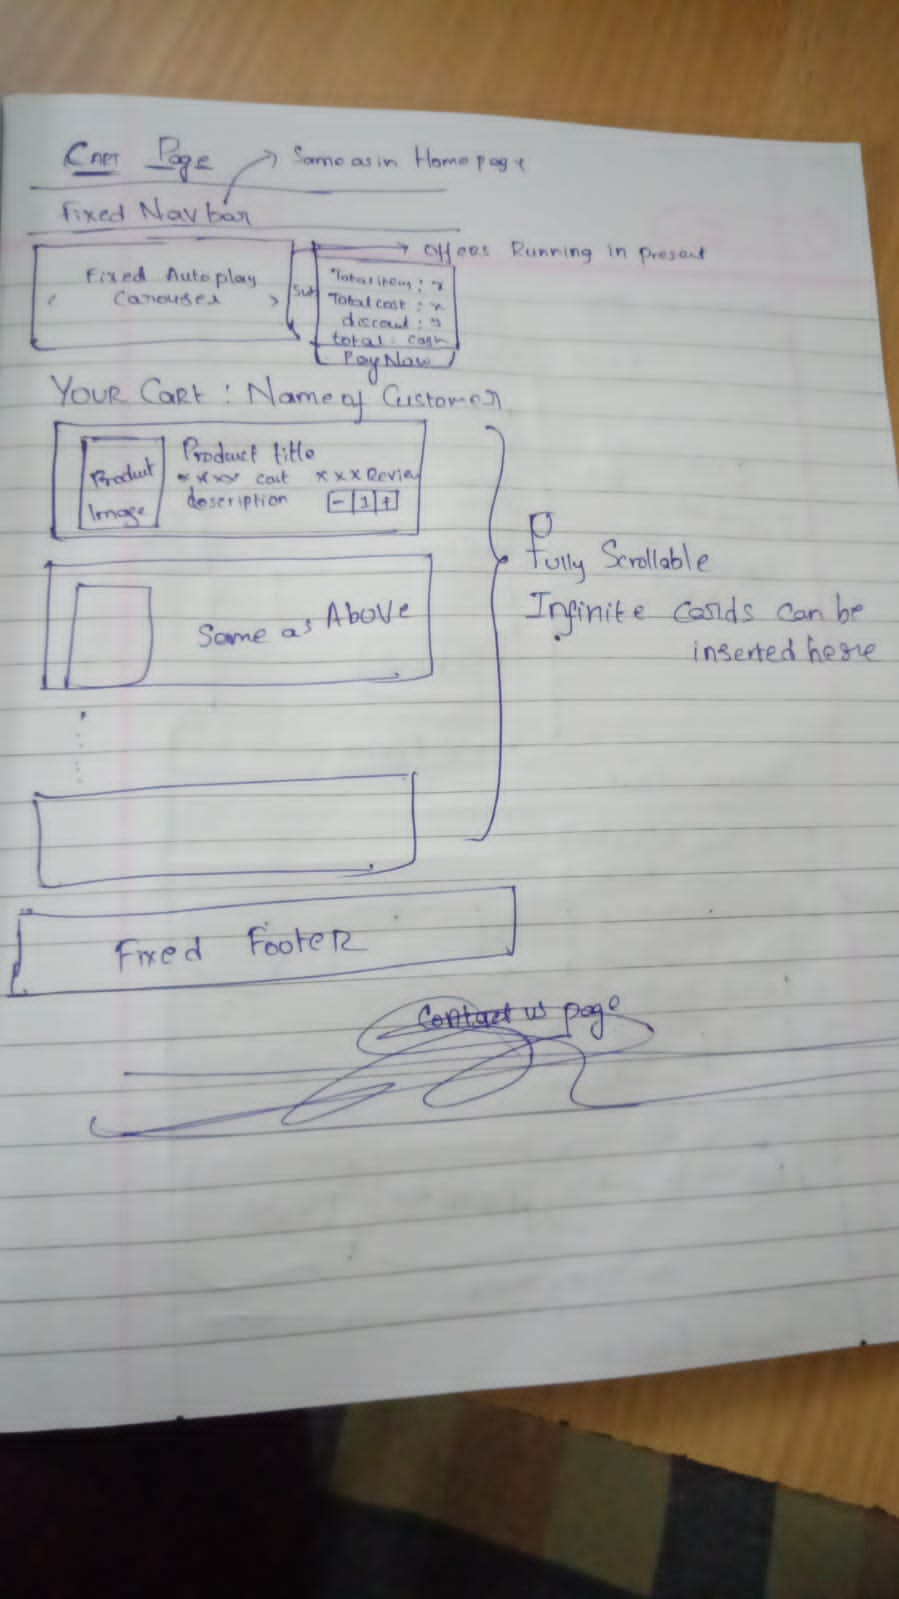 CART Page
Same as in Home page
Fixed Navbar
offers Running in present
Fixed Autoplay
< Carousel >
Total items : x
Total cost : x
discout : y
total cash
Pay Now
YOUR CART : Name of Customer
Product
Image
Product title
xxxx cost xxx Review
description - 1 +
Same as Above
Fully Scrollable
Infinite cards can be
inserted here
Fixed FooteR
Contact us page